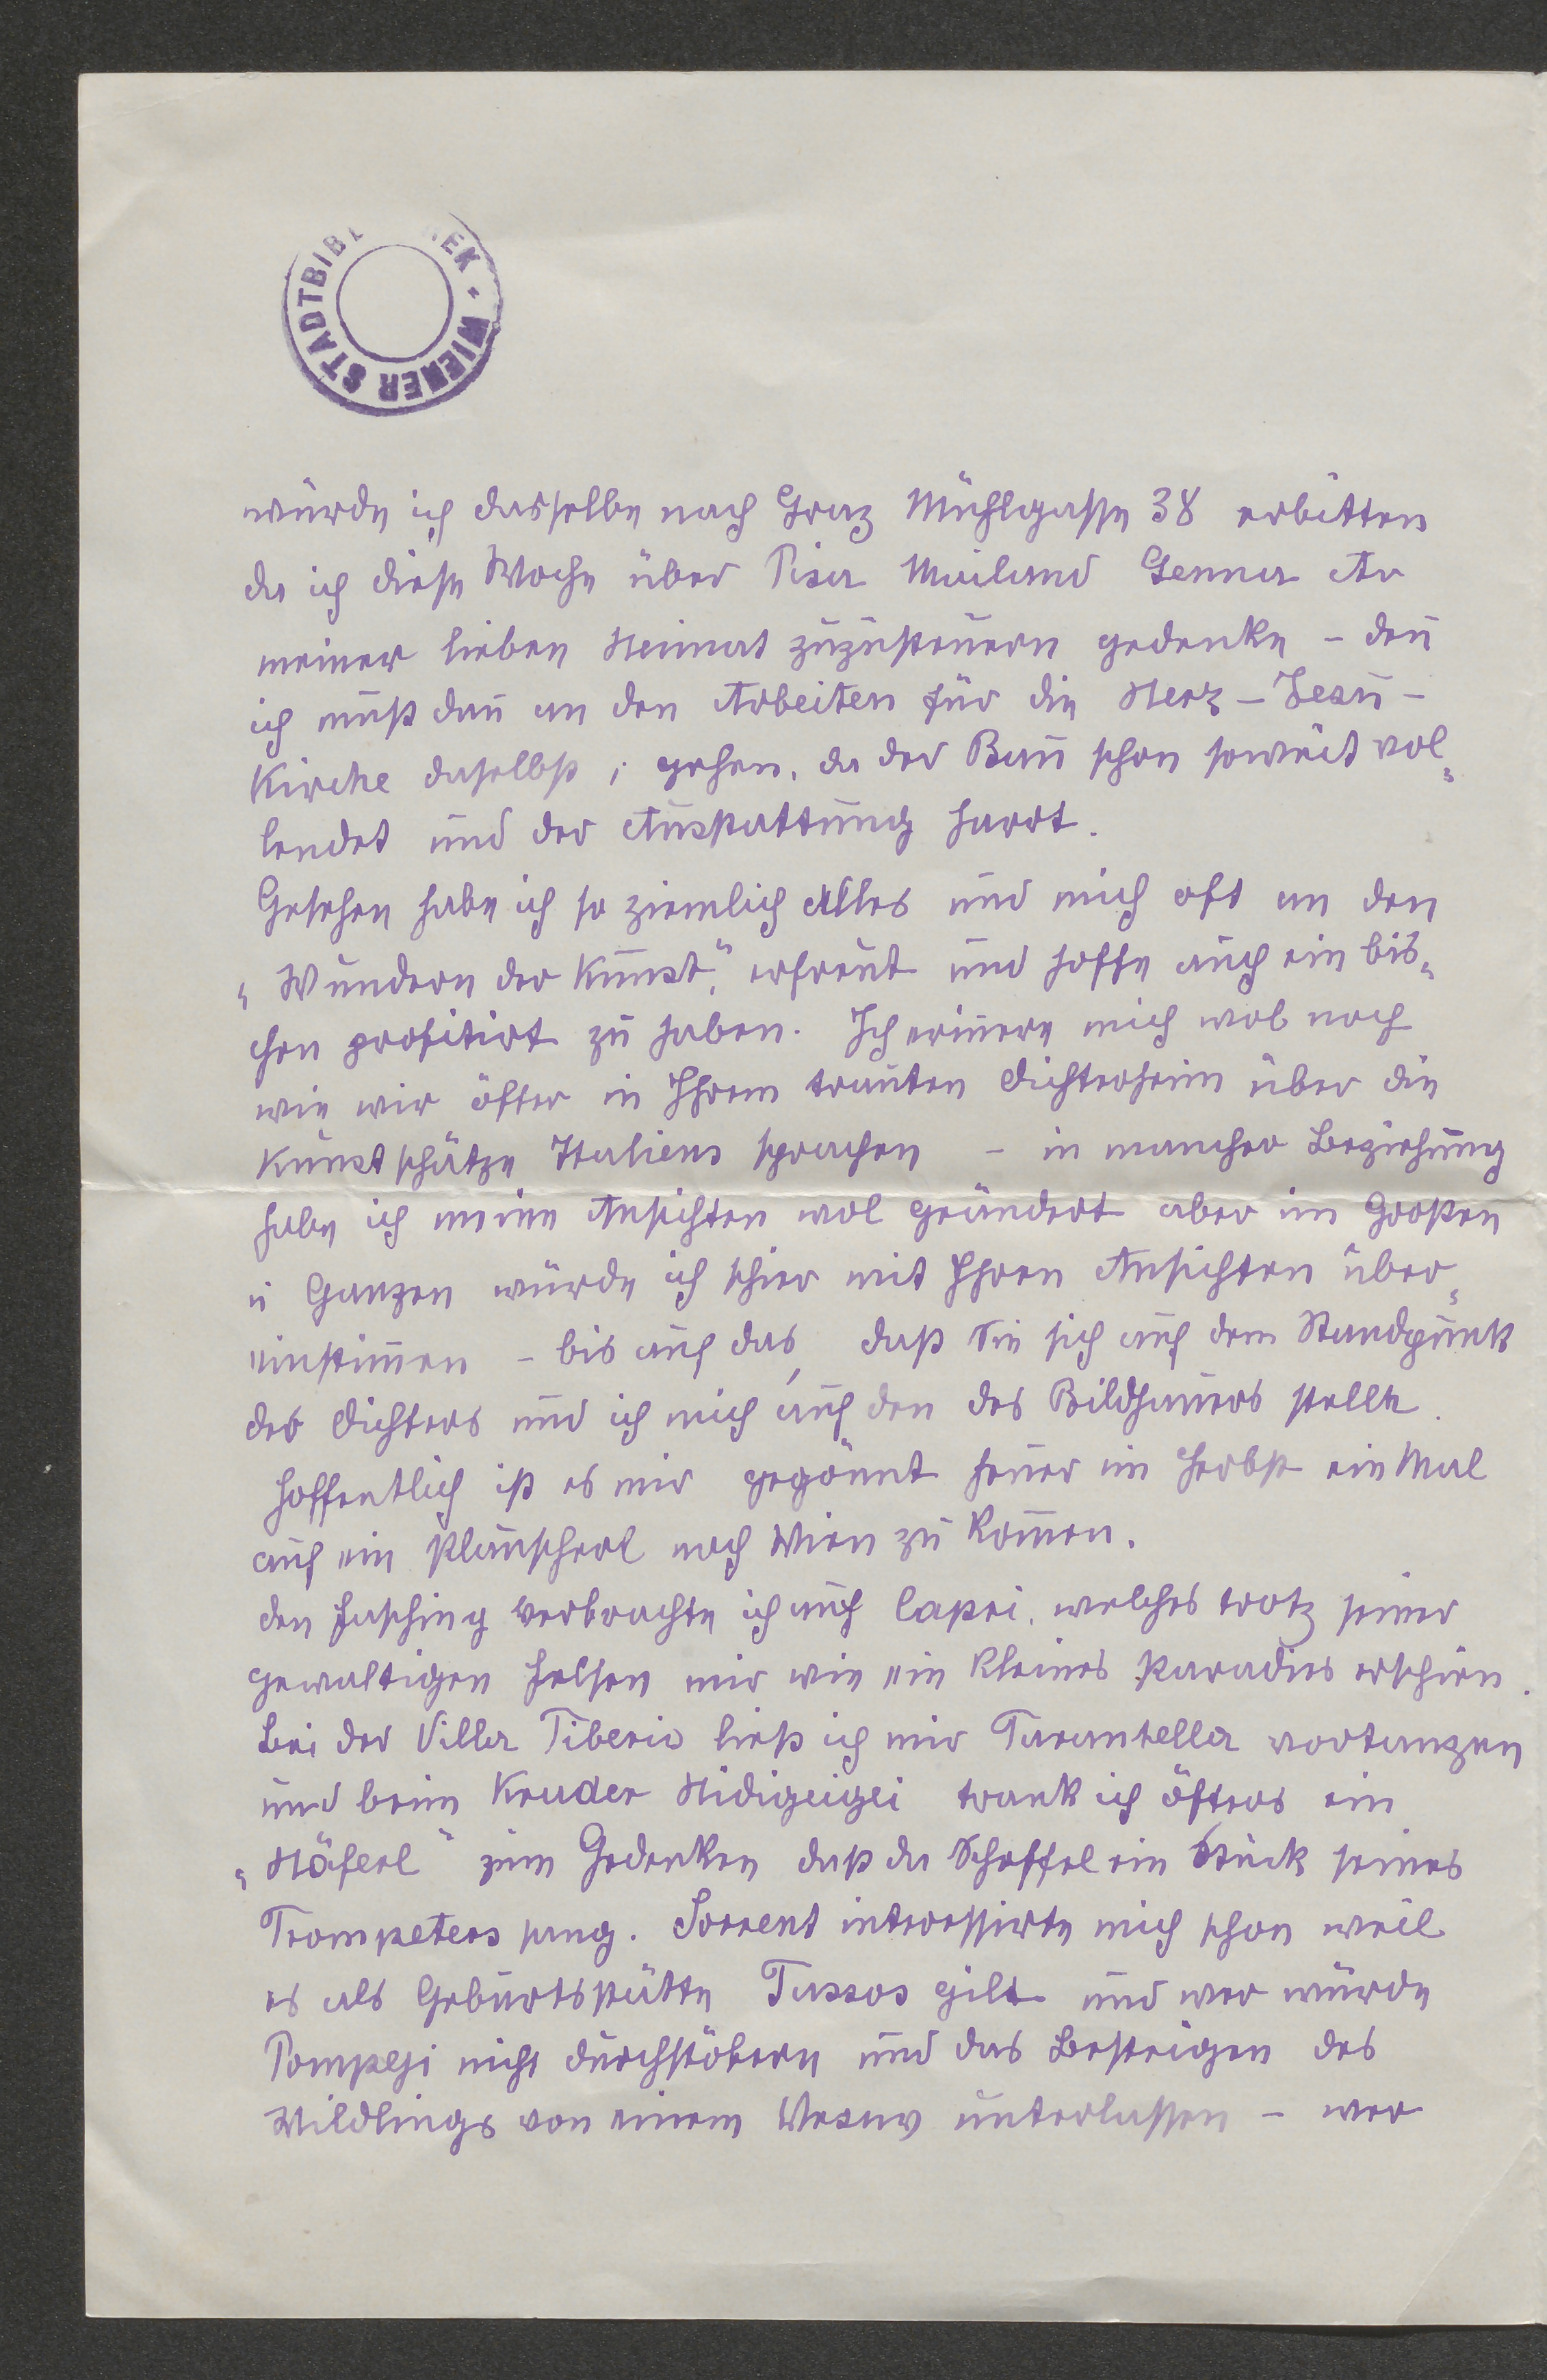 WIENER STADTBIB EK
würde ich dasselbe nach Graz Mühlgasse 38 erbitten
da ich diese Woche über Pisa Mailand Genua
meiner lieben Heimat zuzusteuern gedenke – den̅
ich muß dan̅ an den Arbeiten für die Herz-Jesu-
Kirche daselbst, gehen, da der Bau schon soweit vol„
lendet und der Ausstattung harrt.
Gesehen habe ich so ziemlich Alles und mich oft an den
„Wundern der Kunst" erfreut und hoffe auch ein bis„
chen profitirt zu haben. Ich erin̅ere mich wol noch
wie wir öfter in Ihrem trauten Dichterheim über die
Kunstschätze Italiens sprachen – in mancher Beziehung
habe ich meine Ansichten wol geändert aber im Großen
u Ganzen würde ich schier mit Ihren Ansichten über„
einstim̅en – bis auf das, daß Sie sich auf dem Standpunk
des Dichters und ich mich auf den des Bildhauers stelle.
Hoffentlich ist es mir gegönnt heuer im Herbst ein Mal
auf ein Plauscherl nach Wien zu kom̅en.
Den Fasching verbrachte ich auf Capri, welches trotz seiner
gewaltigen Felsen mir wie ein kleines Paradies erschien.
Bei der Villa Tiberio ließ ich mir Tarantella vortanzen
und beim Kader Hidigeigei trank ich öfters ein
„Häferl" zum Gedenken daß da Scheffel ein Stück seines
Trompeters sang. Sorrent interessirte mich schon weil
es als Geburtsstätte Tassos gilt und wer würde
Pompeji nicht durchstöbern und das Besteigen des
Wildlings von einem Vesuv unterlassen – wer